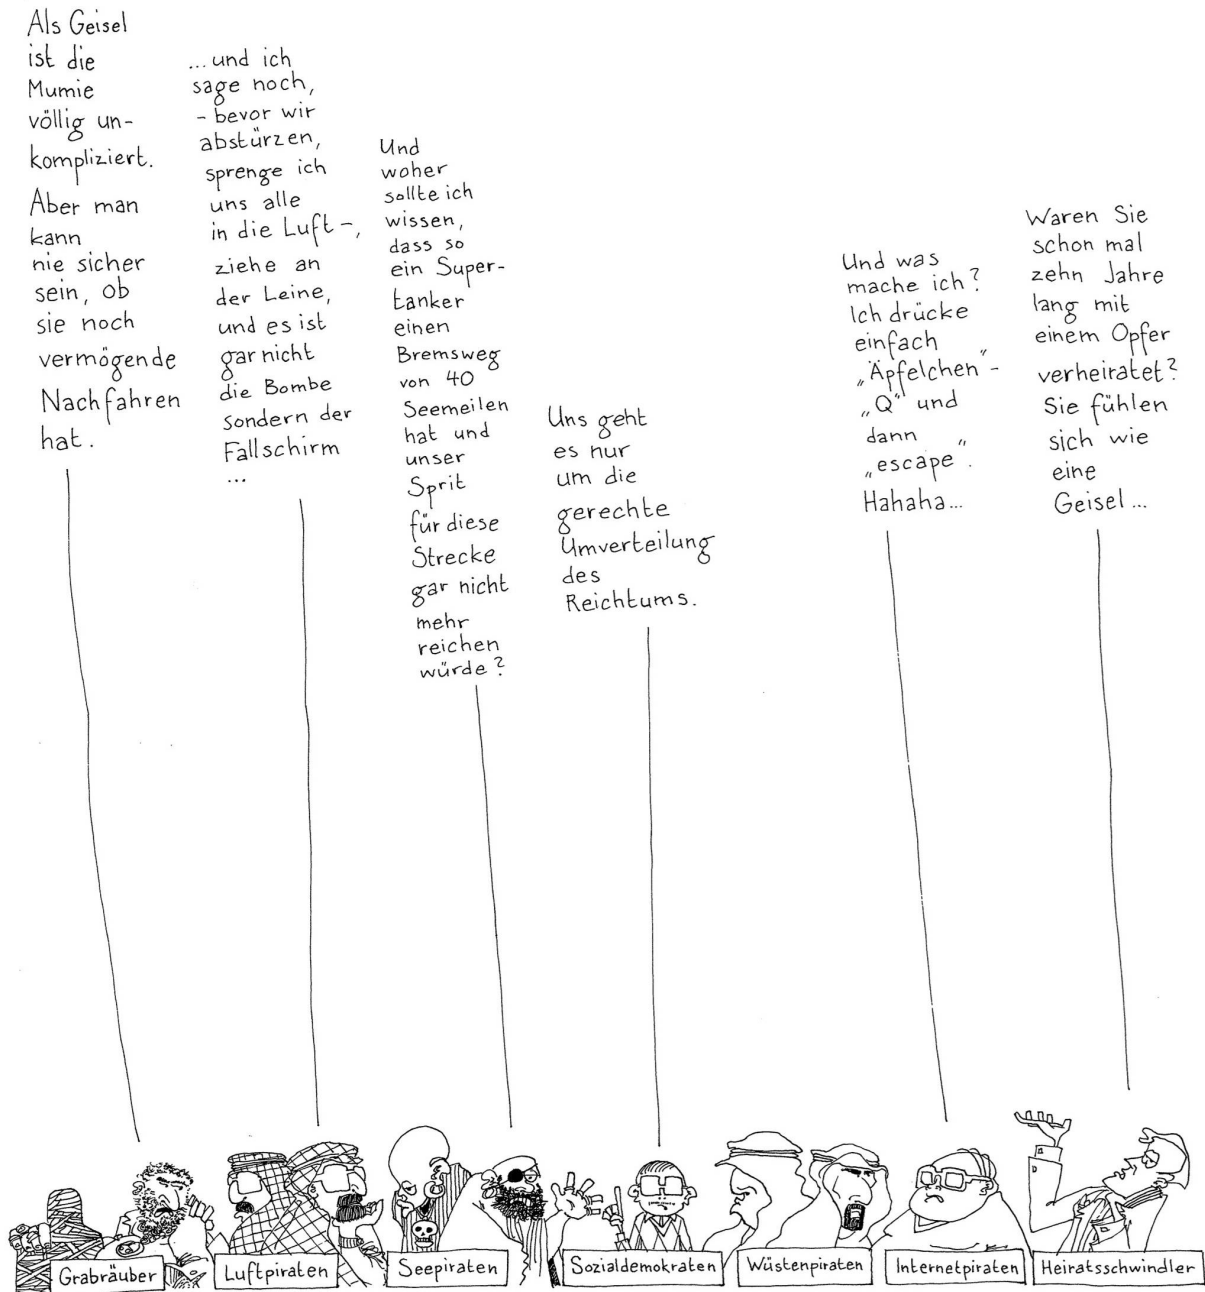 Als Geisel
ist die
Mumie
völlig un-
kompliziert.
Aber man
kann
nie sicher
sein, ob
sie noch
vermögende
Nachfahren
hat.
...und ich
sage noch,
- bevor wir
abstürzen,
sprenge ich
uns alle
in die Luft -,
ziehe an
der Leine,
und es ist
gar nicht
die Bombe
sondern der
Fallschirm
...
Und
woher
sollte ich
wissen,
dass so
ein Super-
tanker
einen
Bremsweg
von 40
Seemeilen
hat und
unser
Sprit
für diese
Strecke
gar nicht
mehr
reichen
würde?
Uns geht
es nur
um die
gerechte
Umverteilung
des
Reichtums.
Und was
mache ich?
Ich drücke
einfach
„Äpfelchen"-
„Q" und
dann
„escape".
Hahaha...
Waren Sie
schon mal
zehn Jahre
lang mit
einem Opfer
verheiratet?
Sie fühlen
sich wie
eine
Geisel...
Grabräuber
Luftpiraten
Seepiraten
Sozialdemokraten
Wüstenpiraten
Internetpiraten
Heiratsschwindler